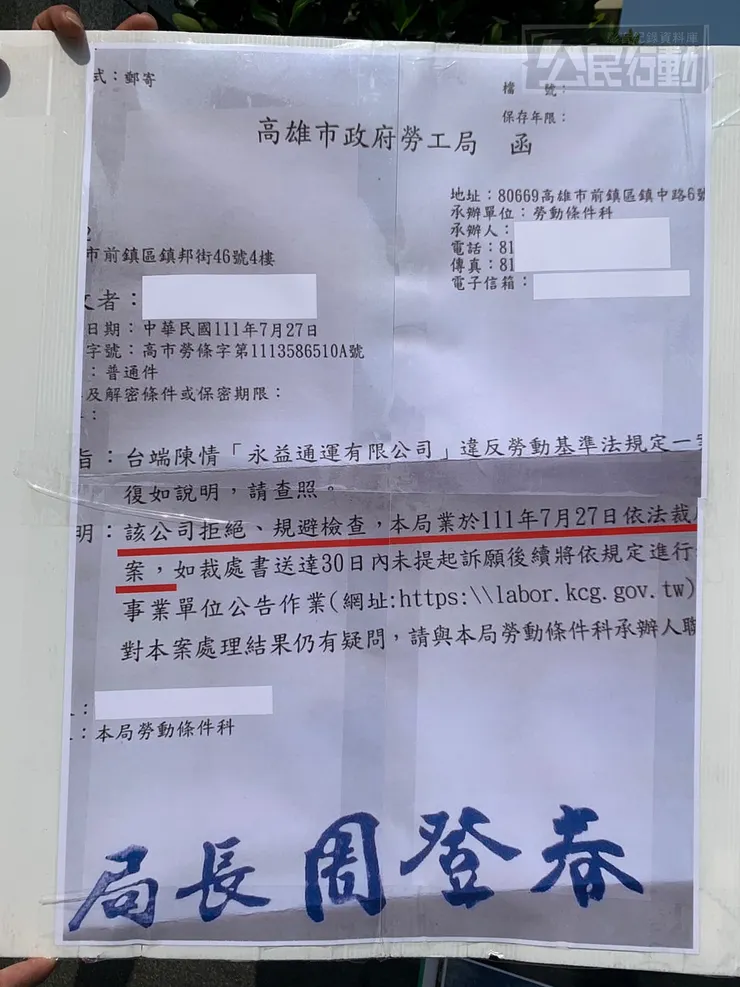 公民行動
式：郵寄
檔　　號：
保存年限：
高雄市政府勞工局　函
地址：80669高雄市前鎮區鎮中路6號
承辦單位：勞動條件科
承辦人：
電話：81
傳真：81
電子信箱：
2
市前鎮區鎮邦街46號4樓
文者：
日期：中華民國111年7月27日
字號：高市勞條字第1113586510A號
：普通件
及解密條件或保密期限：
：
旨：台端陳情「永益通運有限公司」違反勞動基準法規定一案
復如說明，請查照。
明：該公司拒絕、規避檢查，本局業於111年7月27日依法裁
案，如裁處書送達30日內未提起訴願後續將依規定進行
事業單位公告作業(網址:https:\\labor.kcg.gov.tw)
對本案處理結果仍有疑問，請與本局勞動條件科承辦人聯
：
：本局勞動條件科
局長周登春